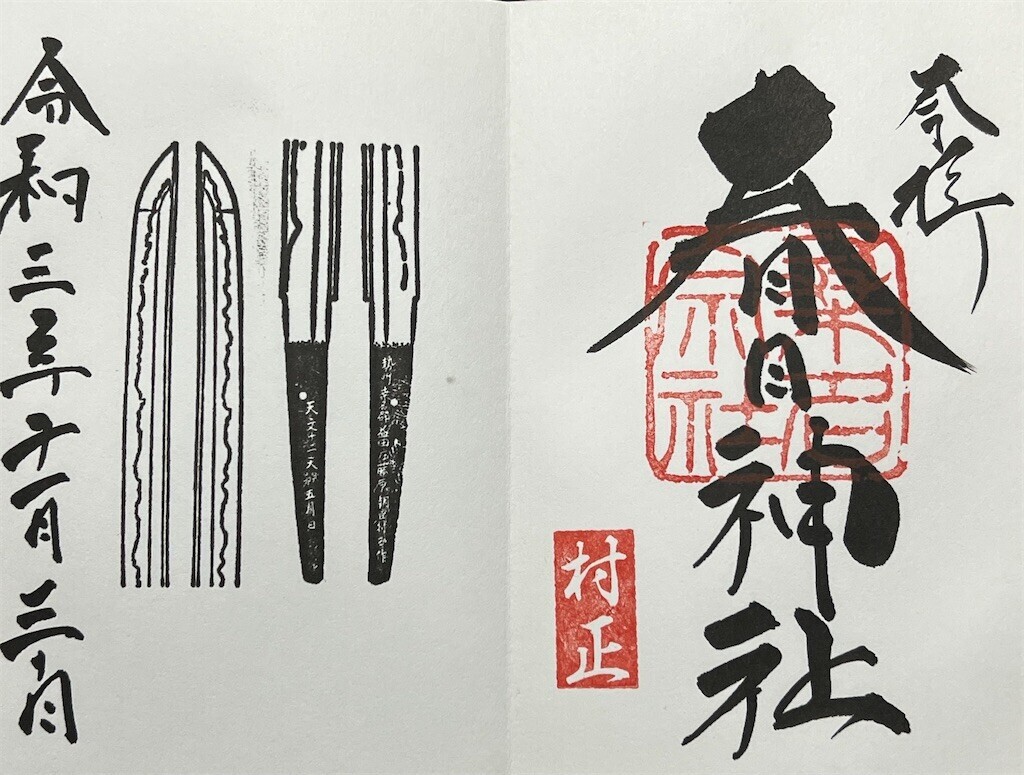 奉拝
春日神社
村正
勢州桑名郡益田庄藤原朝臣村正作
天文十二天癸卯五月日
令和三年十一月三十日